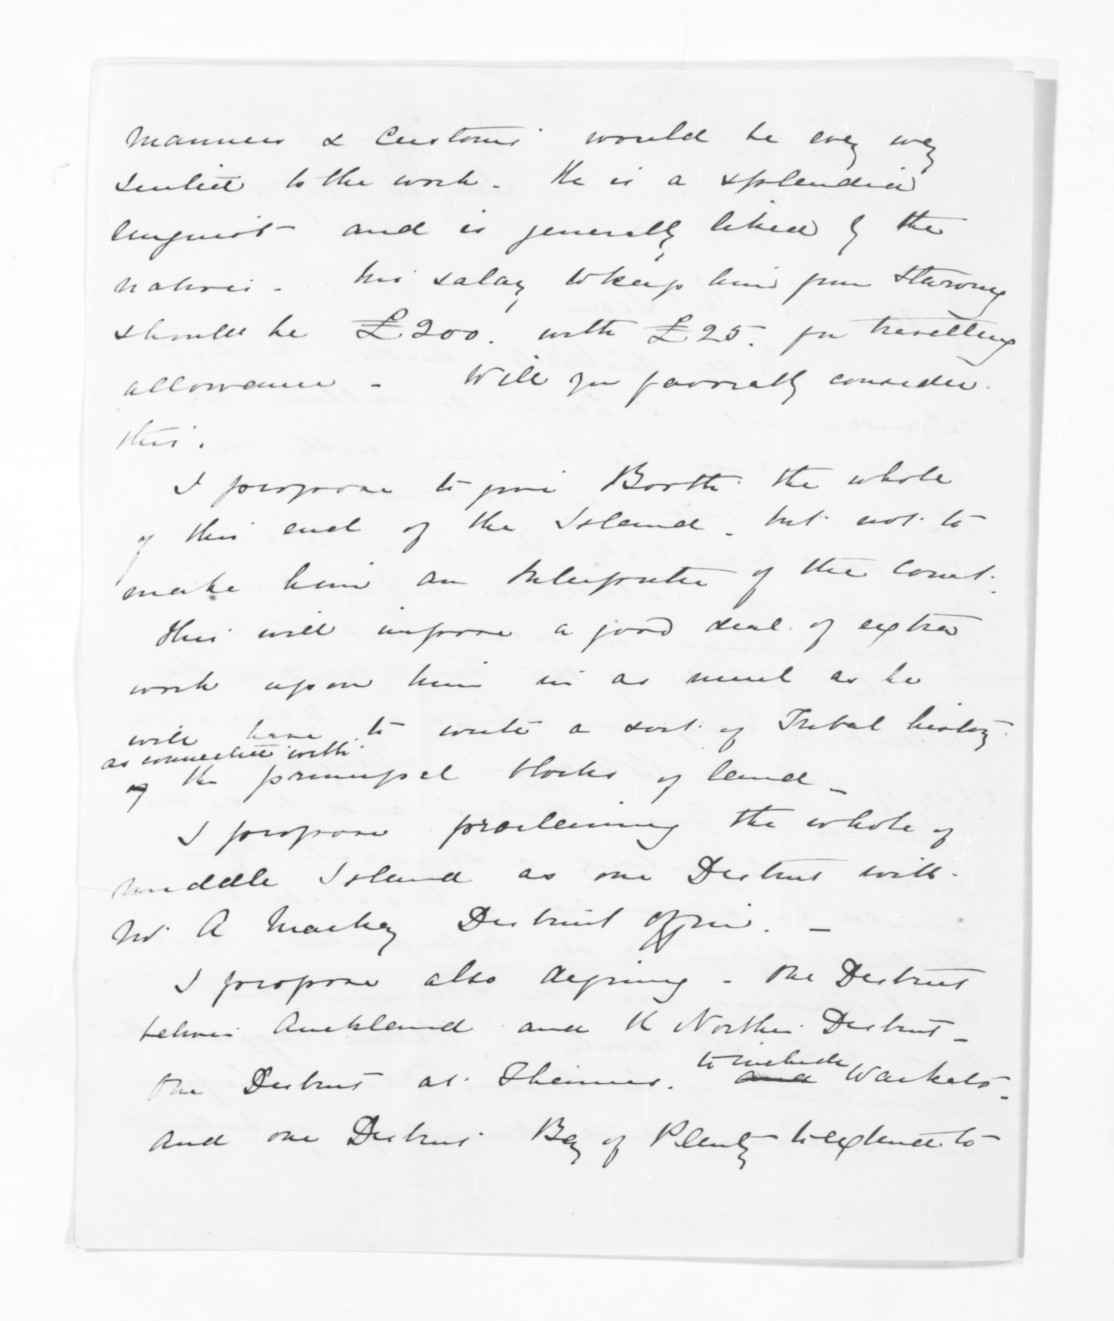 manners & customs would be every way
suited to the work - He is a splendid
linguist and is generally liked by the
natives - his salary to keep him from starving
should be £200. with £25. for travelling
allowance - Will you favorably consider
this.
I propose to give Booth the whole
of this end of the Island - but not to
make him an Interpreter of the Court.
this will impose a good deal of extra
work upon him in as much as he
will have to write a sort of Tribal history
as connected with
of the principal blocks of land -
I propose proclaiming the whole of
Middle Island as one District with
Mr A Mackay District Officer. -
I propose also defining - one District
Auckland and the Northn District -
One District at Thames. to include and Waikato -
and one District Bay of Plenty to extend to